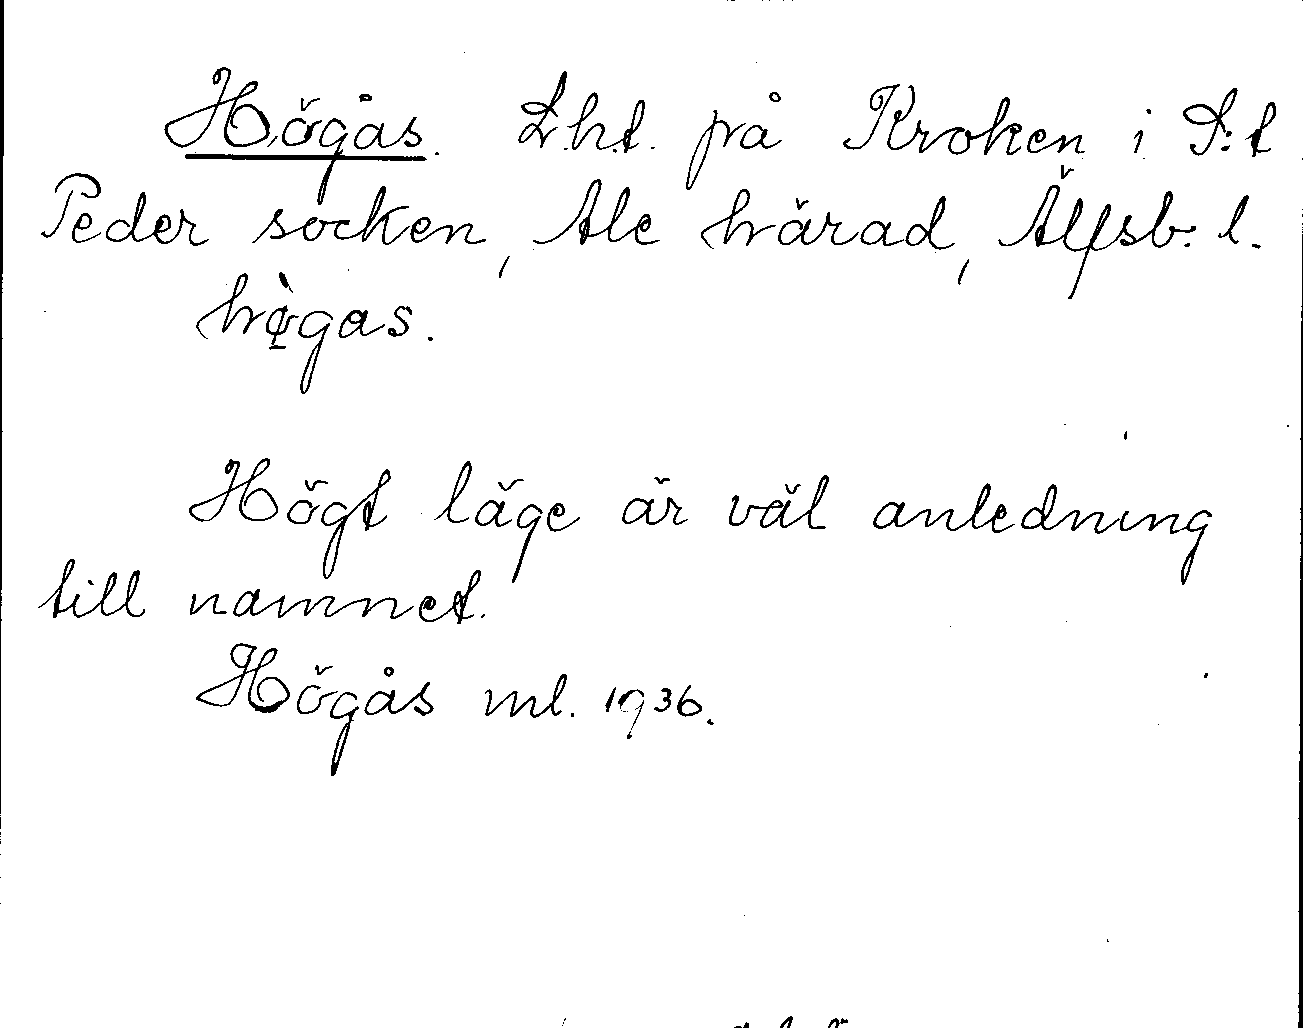 Högås. Lht. på Kroken i S:t
Peder socken, Ale härad, Älfsb. l.
hø̀gas.
Högt läge är väl anledning
till namnet.
Högås ml. 1936.